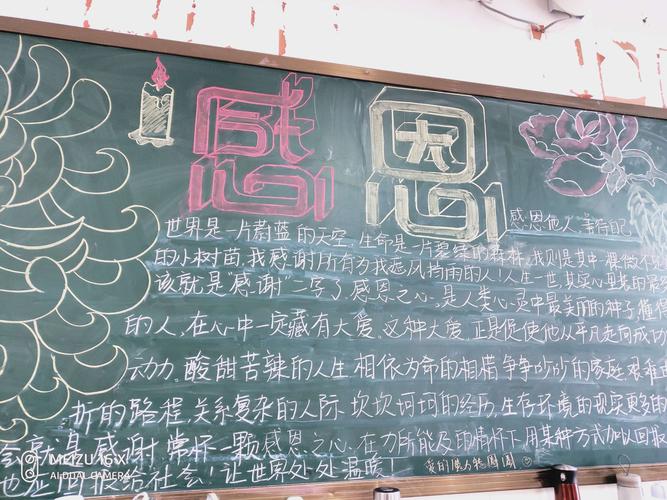 感恩
感恩他人 善待自己
世界是一片蔚蓝的天空，生命是一片翠绿的森林，我则是其中
的小树苗，我感谢所有为我遮风挡雨的人！人生一世，其实心里装的最
该就是“感谢”二字了。感恩之心，是人类心灵中最美丽的种子，
的人，在心中一定藏有大爱。这种大爱，正是促使他从平凡走向成功
动力。酸甜苦辣的人生 相依为命的相携 争争吵吵的家庭 艰难
折的路程，关系复杂的人际 坎坎坷坷的经历，生存环境的现实
感谢 常怀一颗感恩之心，在力所能及的情怀下用某种方式加以回报
报给社会！让世界处处温暖！
我的魔力
MEIZU 16 X
AI DUAL CAMERA